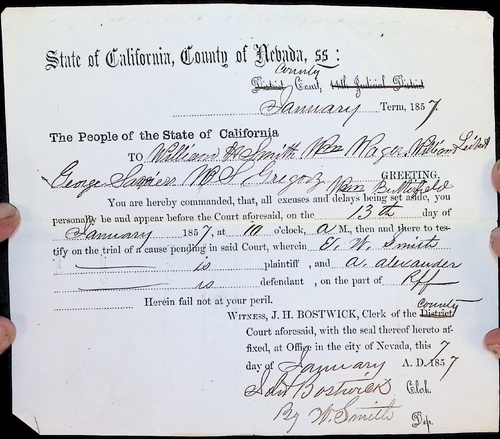 State of California, County of Nevada, ss:
County
District Court, 14th Judicial District
January Term, 1857.
The People of the State of California
TO William H Smith Wm Wager William
George W S Gregory GREETING,
Wm Butterfield
You are hereby commanded, that, all excuses and delays being set aside, you
personally be and appear before the Court aforesaid, on the 13th day of
January 1857, at 10 o'clock, A M., then and there to tes-
tify on the trial of a cause pending in said Court, wherein E. W. Smith
is plaintiff, and A. Alexander
is defendant, on the part of Plff
Herein fail not at your peril.
WITNESS, J. H. BOSTWICK, Clerk of the District County
Court aforesaid, with the seal thereof hereto af-
fixed, at Office in the city of Nevada, this 7
day of January A. D. 1857
Bostwick Clerk.
By W. Smith Dep.